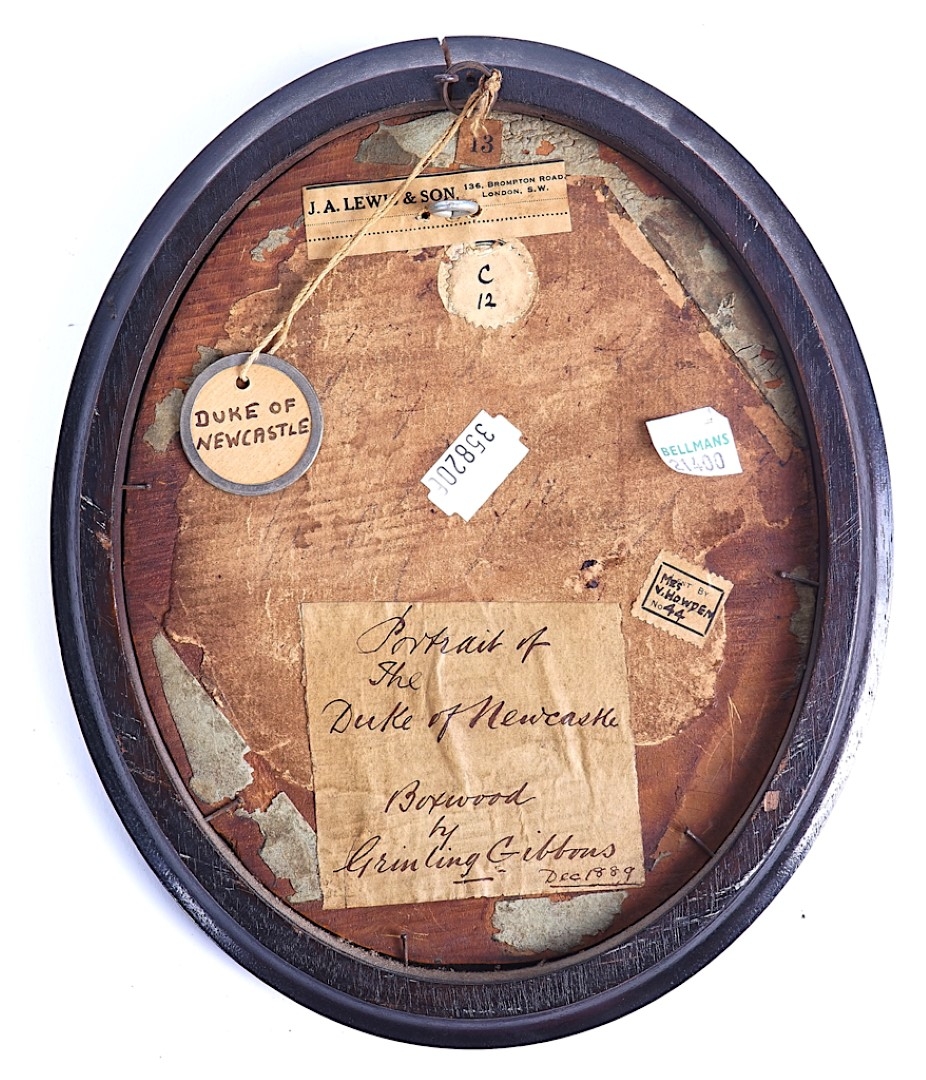 13
J. A. LEWIS & SON, 136, BROMPTON ROAD,
LONDON, S.W.
C
12
DUKE OF
NEWCASTLE
35820
BELLMANS
21400
MRS BY
V. HOWDEN
No 44
Portrait of
The
Duke of Newcastle
Boxwood
by
Grinling Gibbons
Dec 1889